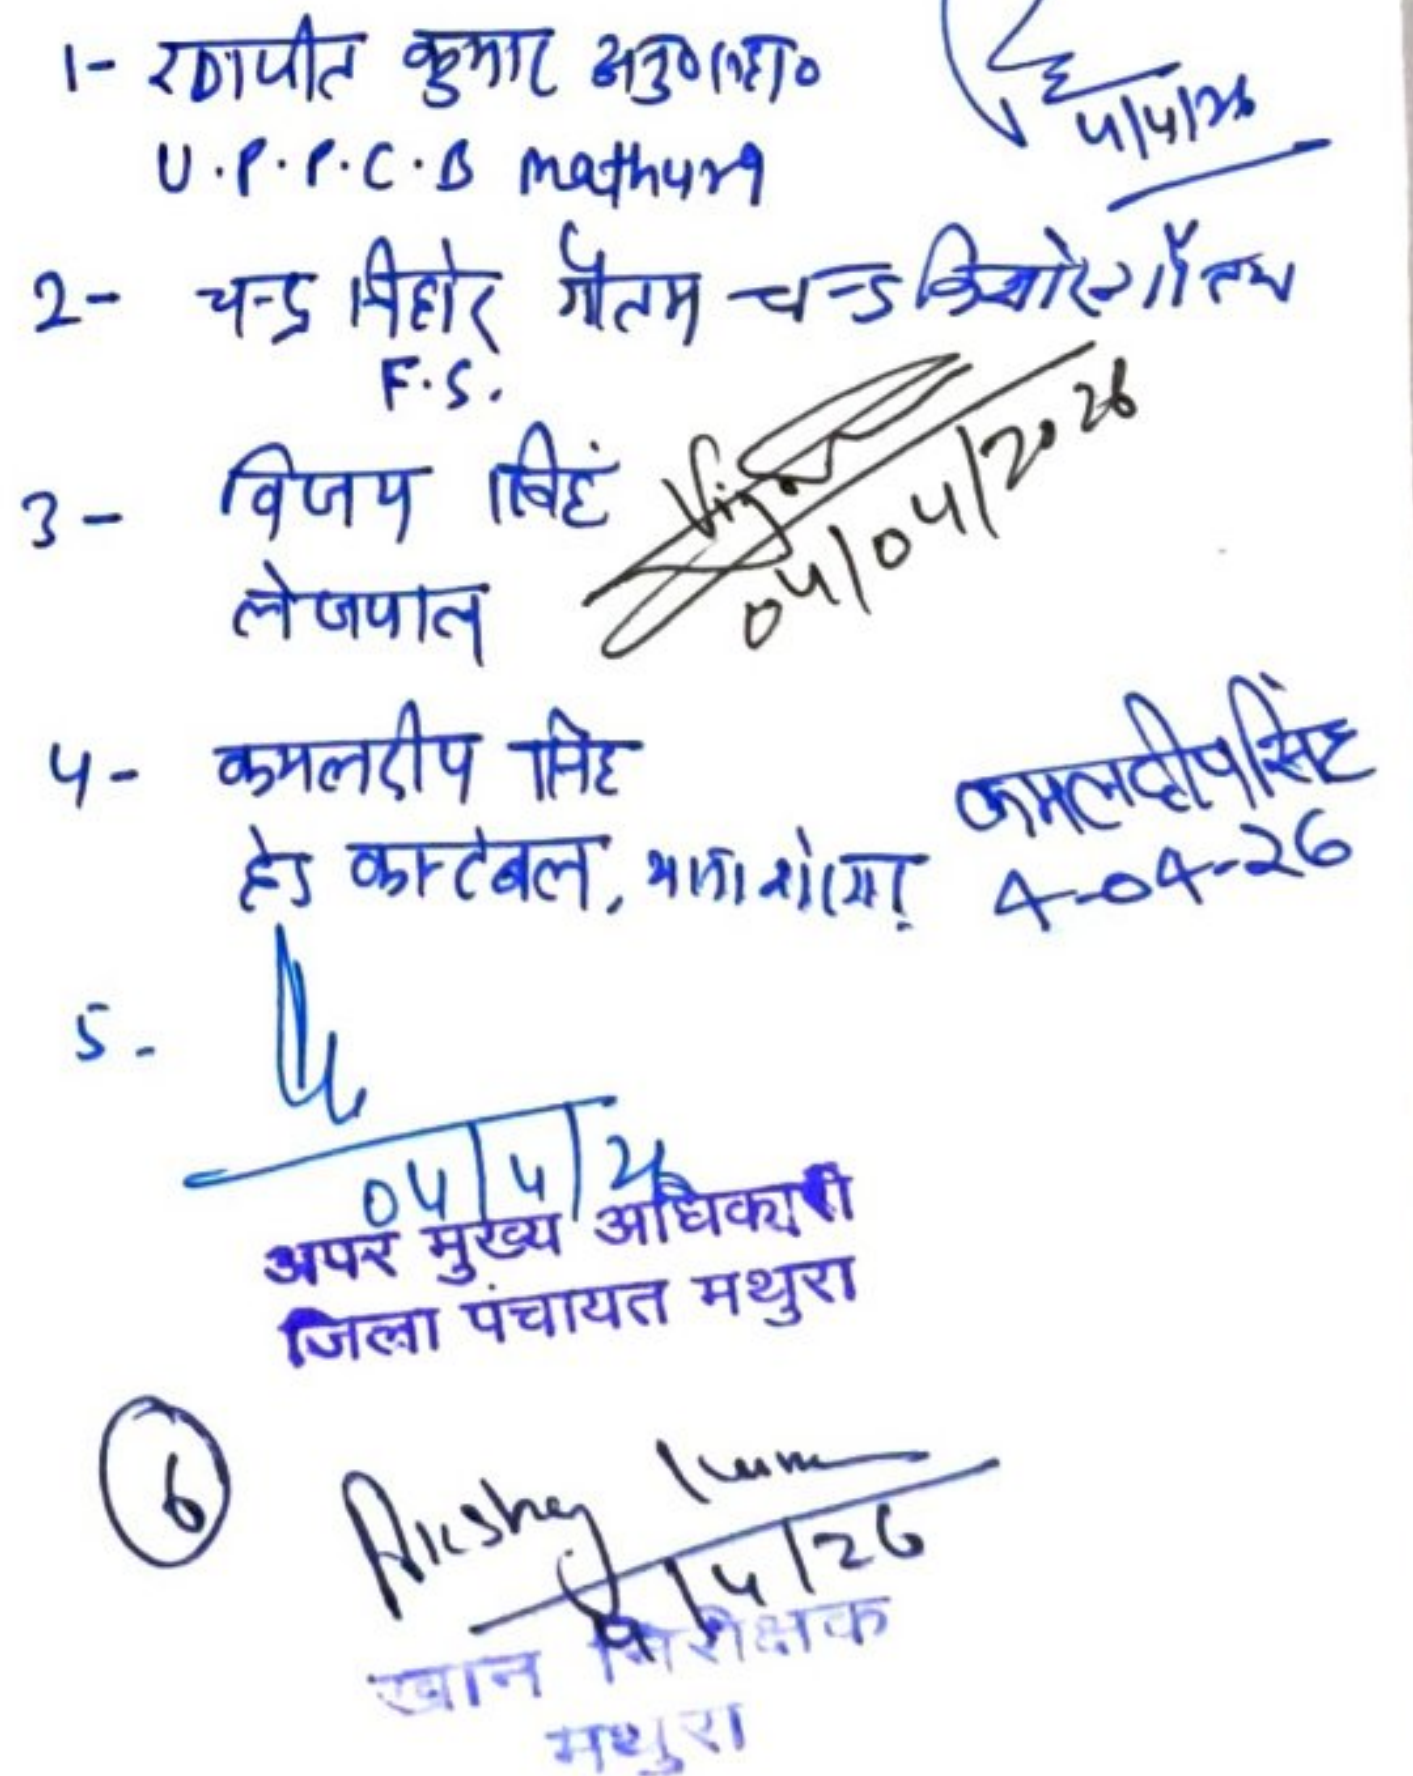 1- रणजीत कुमार अनु०सहा० 4/4/26
U.P.P.C.B Mathura
2- चन्द्र किशोर गौतम चन्द्र किशोर गौतम
F.S.
3- विजय सिहं Vijay 04/04/2026
लेखपाल
4- कमलदीप सिंह कमलदीप सिंह
हेड कास्टेबल, थाना 4-04-26
5-
04/4/26
अपर मुख्य अधिकारी
जिला पंचायत मथुरा
6 Akshay Kumar
4/4/26
खान निरीक्षक
मथुरा